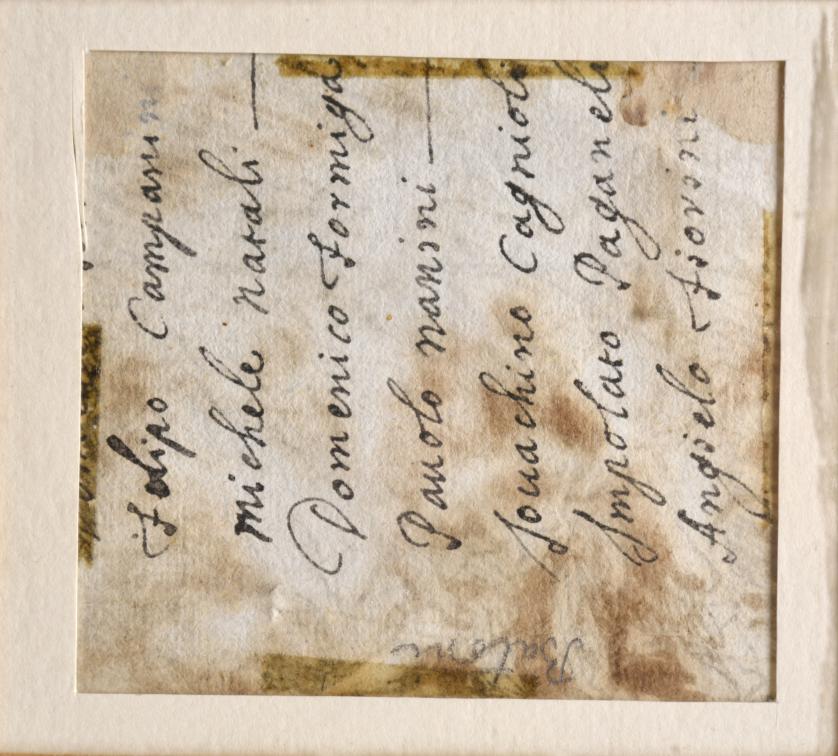 Felipo Campanin
michele natali
Domenico Formiga
Pauolo nanini
Jouachino Cagniol
Impolato Paganel
Angielo Fiorini
Batoni